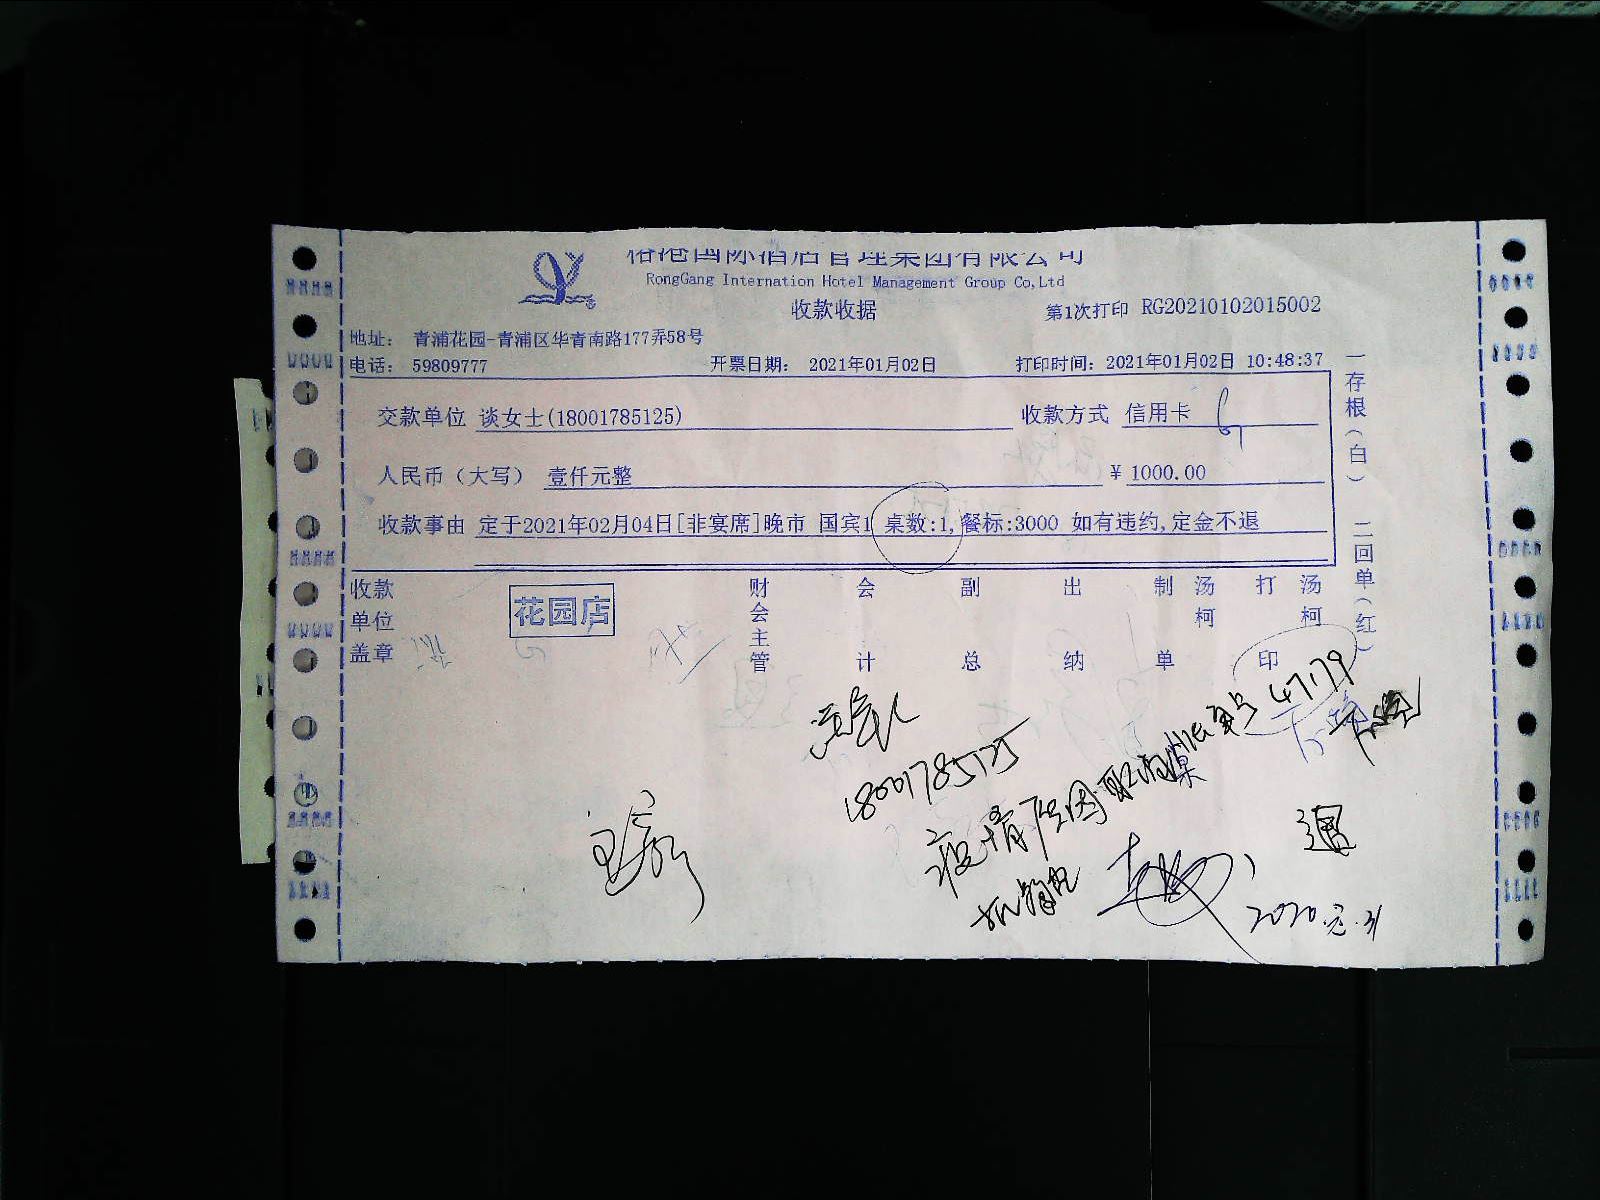 国际酒店管理集团有限公司
RongGang Internation Hotel Management Group Co,Ltd
收款收据
第1次打印 RG20210102015002
地址： 青浦花园-青浦区华青南路177弄58号
电话： 59809777 开票日期： 2021年01月02日 打印时间：2021年01月02日 10:48:37
交款单位 谈女士(18001785125) 收款方式 信用卡
人民币（大写） 壹仟元整 ￥1000.00
收款事由 定于2021年02月04日[非宴席]晚市 国宾1 桌数:1,餐标:3000 如有违约,定金不退
一存根（白） 二回单（红）
收款单位盖章
花园店
财会主管 会计 副总 出纳 制单 汤柯 打印 汤柯
18001785125
疫情原因取消
47179